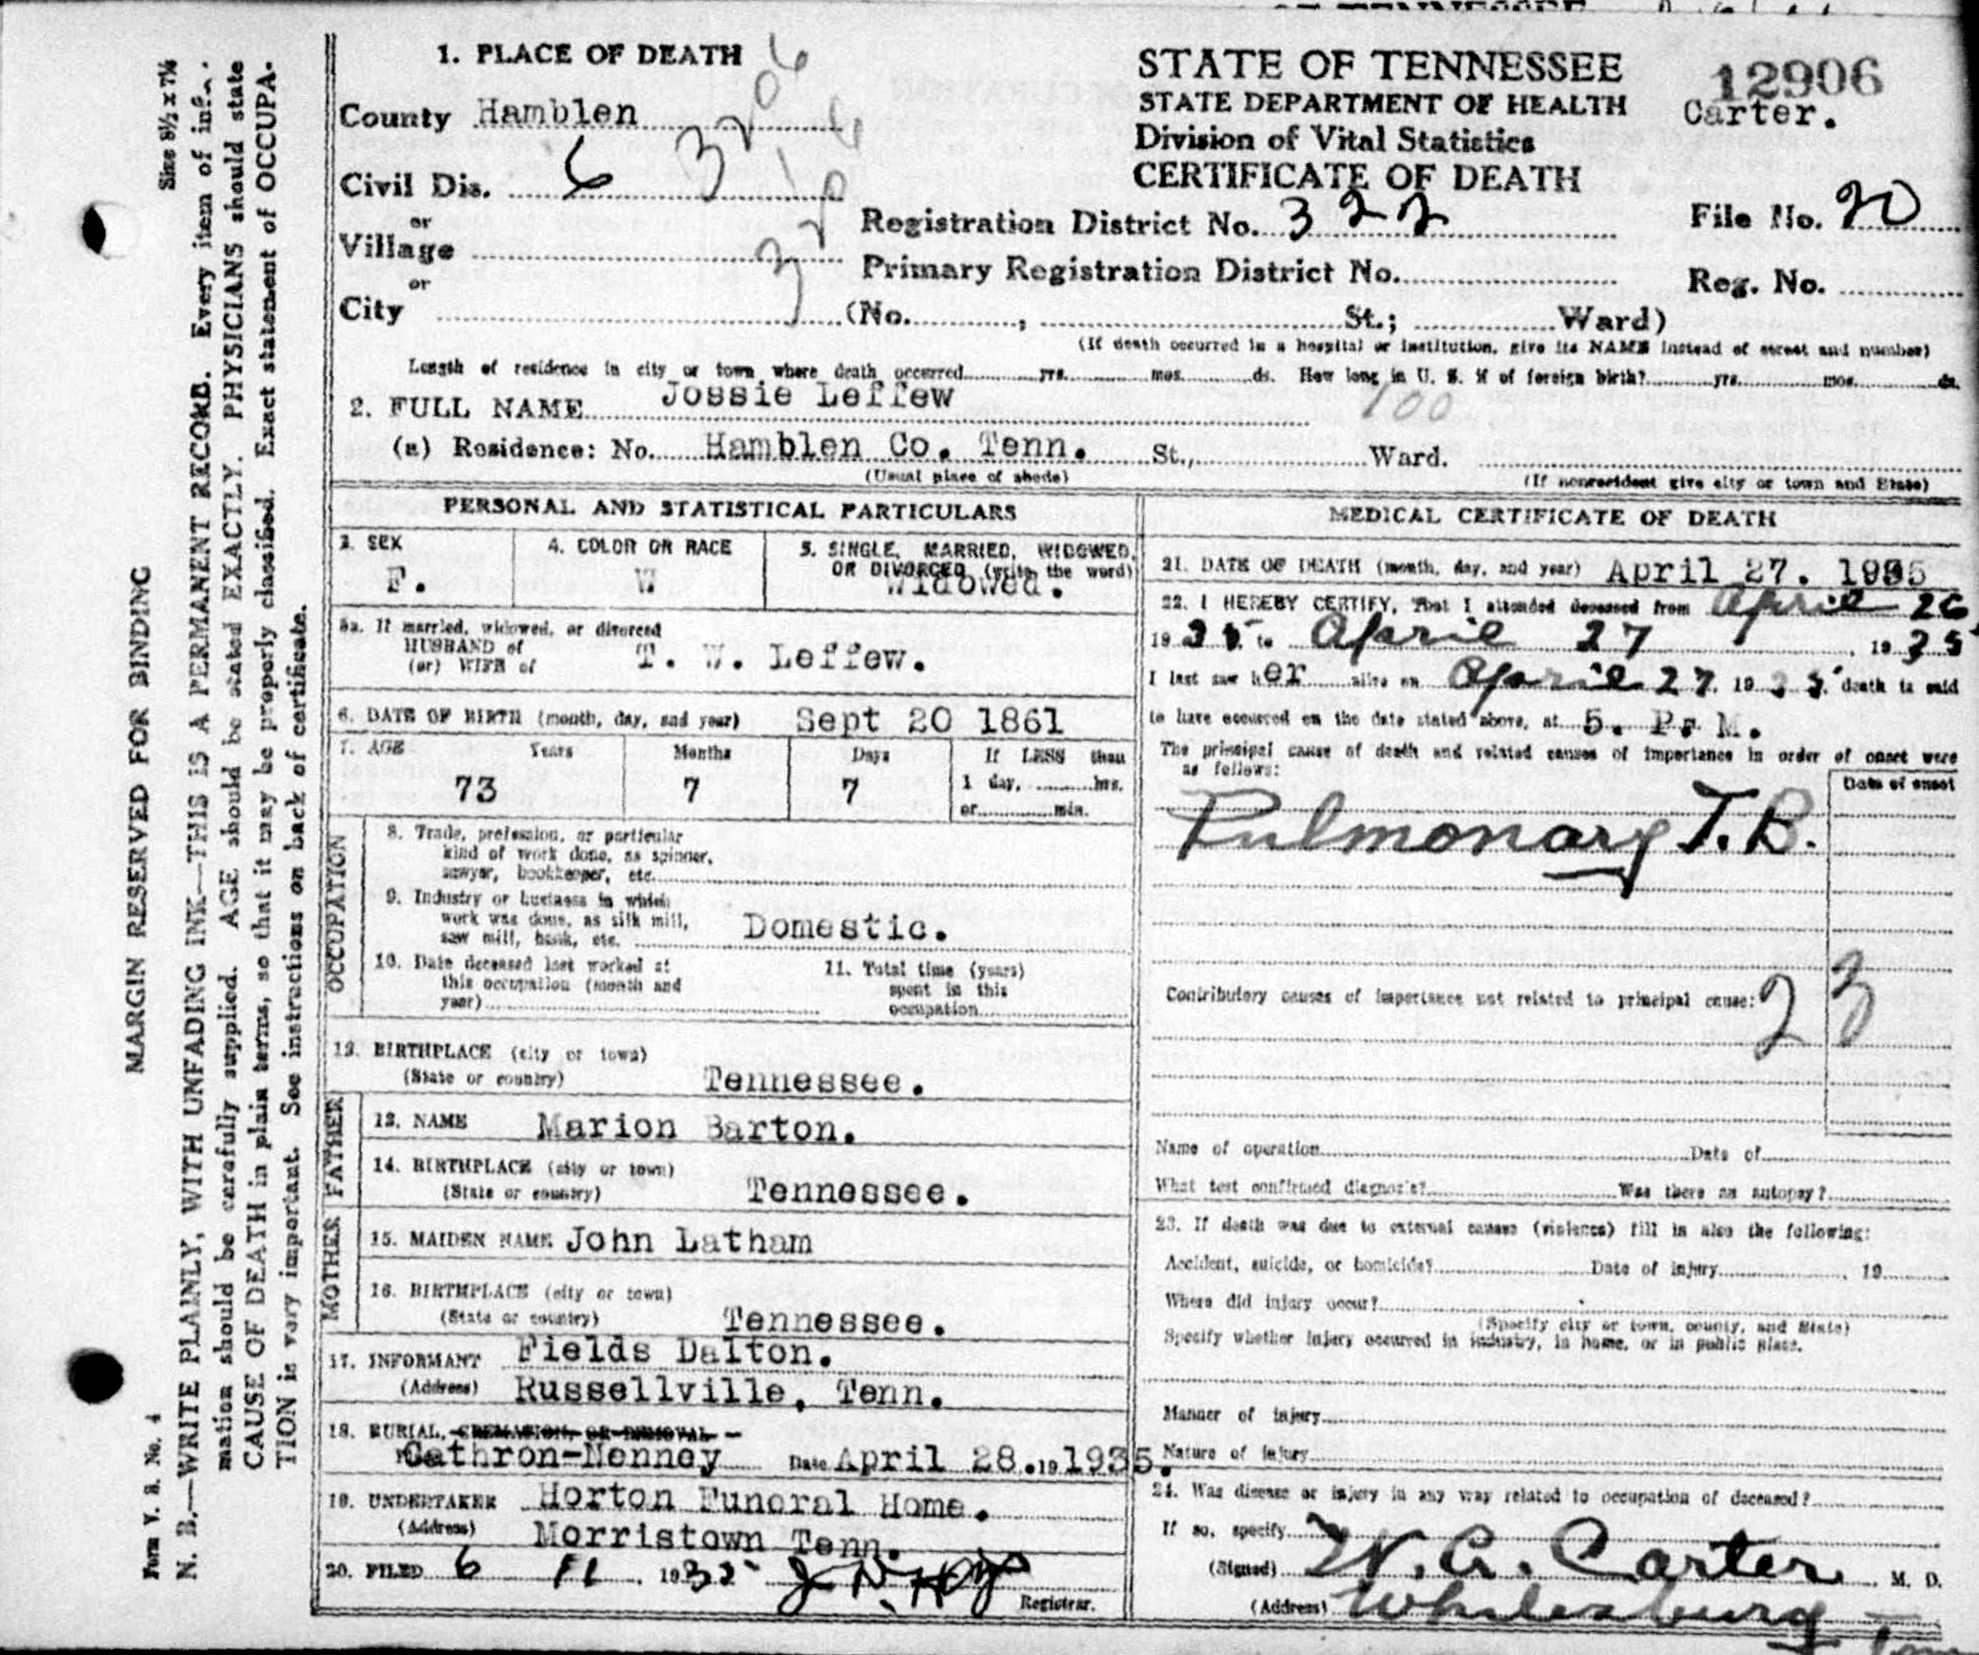 12906
Carter.
1. PLACE OF DEATH
County Hamblen
Civil Dis. 6
or
Village
or
City
(No. , St.; Ward)
STATE OF TENNESSEE
STATE DEPARTMENT OF HEALTH
Division of Vital Statistics
CERTIFICATE OF DEATH
Registration District No. 322
File No. 20
Primary Registration District No.
Reg. No.
(If death occurred in a hospital or institution, give its NAME instead of street and number)
Length of residence in city or town where death occurred yrs. mos. ds. How long in U. S. if of foreign birth? yrs. mos. ds.
2. FULL NAME Jossie Leffew
100
(a) Residence: No. Hamblen Co. Tenn. St., Ward.
(Usual place of abode) (If nonresident give city or town and State)
PERSONAL AND STATISTICAL PARTICULARS
3. SEX F.
4. COLOR OR RACE W.
5. SINGLE, MARRIED, WIDOWED, OR DIVORCED (write the word) Widowed.
5a. If married, widowed, or divorced
HUSBAND of
(or) WIFE of T. W. Leffew.
6. DATE OF BIRTH (month, day, and year) Sept 20 1861
7. AGE Years Months Days If LESS than
73 7 7 1 day, hrs.
or min.
OCCUPATION
8. Trade, profession, or particular
kind of work done, as spinner,
sawyer, bookkeeper, etc.
9. Industry or business in which
work was done, as silk mill,
saw mill, bank, etc. Domestic.
10. Date deceased last worked at
this occupation (month and
year)
11. Total time (years)
spent in this
occupation
12. BIRTHPLACE (city or town)
(State or country) Tennessee.
FATHER
13. NAME Marion Barton.
14. BIRTHPLACE (city or town)
(State or country) Tennessee.
MOTHER
15. MAIDEN NAME John Latham
16. BIRTHPLACE (city or town)
(State or country) Tennessee.
17. INFORMANT Fields Dalton.
(Address) Russellville, Tenn.
18. BURIAL, CREMATION, OR REMOVAL
Cathron-Nenney Date April 28. 19 1935.
19. UNDERTAKER Horton Funeral Home.
(Address) Morristown Tenn.
20. FILED 6 11, 1935
Registrar.
MEDICAL CERTIFICATE OF DEATH
21. DATE OF DEATH (month, day, and year) April 27. 1935
22. I HEREBY CERTIFY, That I attended deceased from April 26,
1935 to April 27, 1935
I last saw her alive on April 27, 1935, death is said
to have occurred on the date stated above, at 5. P. M.
The principal cause of death and related causes of importance in order of onset were
as follows:
Date of onset
Pulmonary T.B.
Contributory causes of importance not related to principal cause:
23
Name of operation Date of
What test confirmed diagnosis? Was there an autopsy?
23. If death was due to external causes (violence) fill in also the following:
Accident, suicide, or homicide? Date of injury , 19
Where did injury occur?
(Specify city or town, county, and State)
Specify whether injury occurred in industry, in home, or in public place.
Manner of injury
Nature of injury
24. Was disease or injury in any way related to occupation of deceased?
If so, specify
(Signed) W. A. Carter, M. D.
(Address) Whitesburg
MARGIN RESERVED FOR BINDING
Size 8½ x 7¼
Form V. S. No. 4
N. B.—WRITE PLAINLY, WITH UNFADING INK—THIS IS A PERMANENT RECORD. Every item of infor-
mation should be carefully supplied. AGE should be stated EXACTLY. PHYSICIANS should state
CAUSE OF DEATH in plain terms, so that it may be properly classified. Exact statement of OCCUPA-
TION is very important. See instructions on back of certificate.